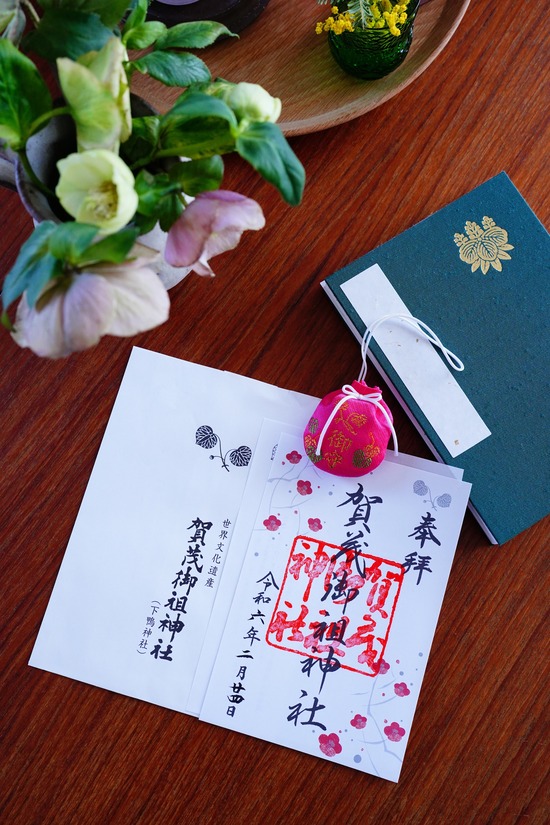 奉拝
賀茂御祖神社
令和六年二月廿四日
世界文化遺産
賀茂御祖神社
(下鴨神社)